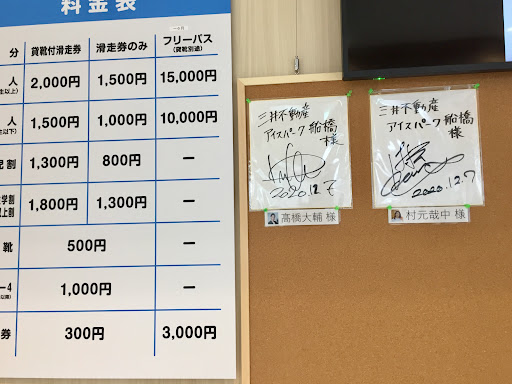 料金表
分 貸靴付滑走券 滑走券のみ フリーパス
(貸靴別途)
人 2,000円 1,500円 15,000円
人 1,500円 1,000円 10,000円
児割 1,300円 800円 ー
学割 1,800円 1,300円 ー
靴 500円 ー
ー4 1,000円 ー
券 300円 3,000円
三井不動産
アイスパーク船橋
様
2020.12.7
髙橋大輔 様
三井不動産
アイスパーク船橋
様
2020.12.7
村元哉中 様